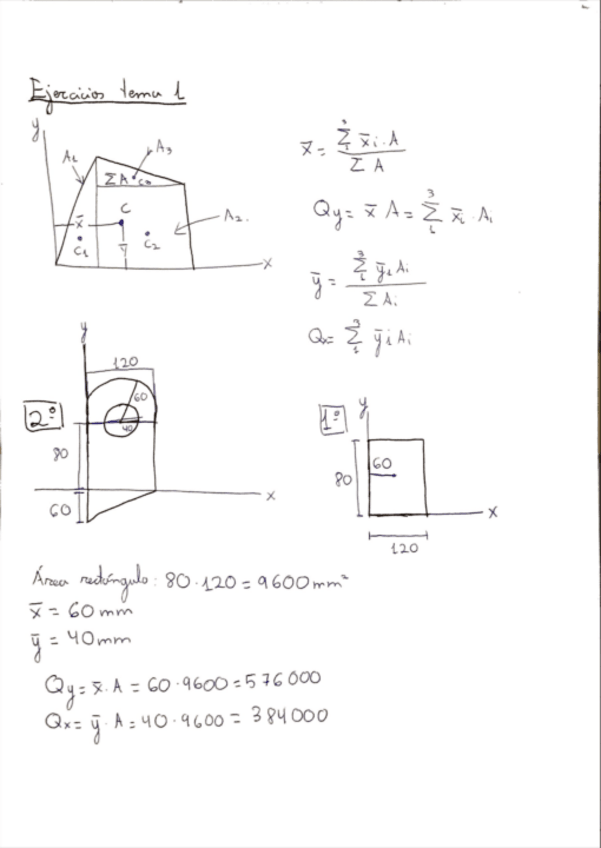 Ejercicios tema 1
y
A₁
A₃
ΣA
C₃
x̄
C
A₂.
C₁
ȳ
C₂
x
x̄ = Σ x̄i · A / Σ A
Qy = x̄ A = Σ³₁ x̄i · Ai
ȳ = Σ³₁ ȳi Ai / Σ Ai
Qx = Σ³₁ ȳi Ai
2º
y
120
60
40
80
60
x
1º
y
60
80
x
120
Área rectángulo: 80 · 120 = 9600 mm²
x̄ = 60 mm
ȳ = 40 mm
Qy = x̄ · A = 60 · 9600 = 576000
Qx = ȳ · A = 40 · 9600 = 384000